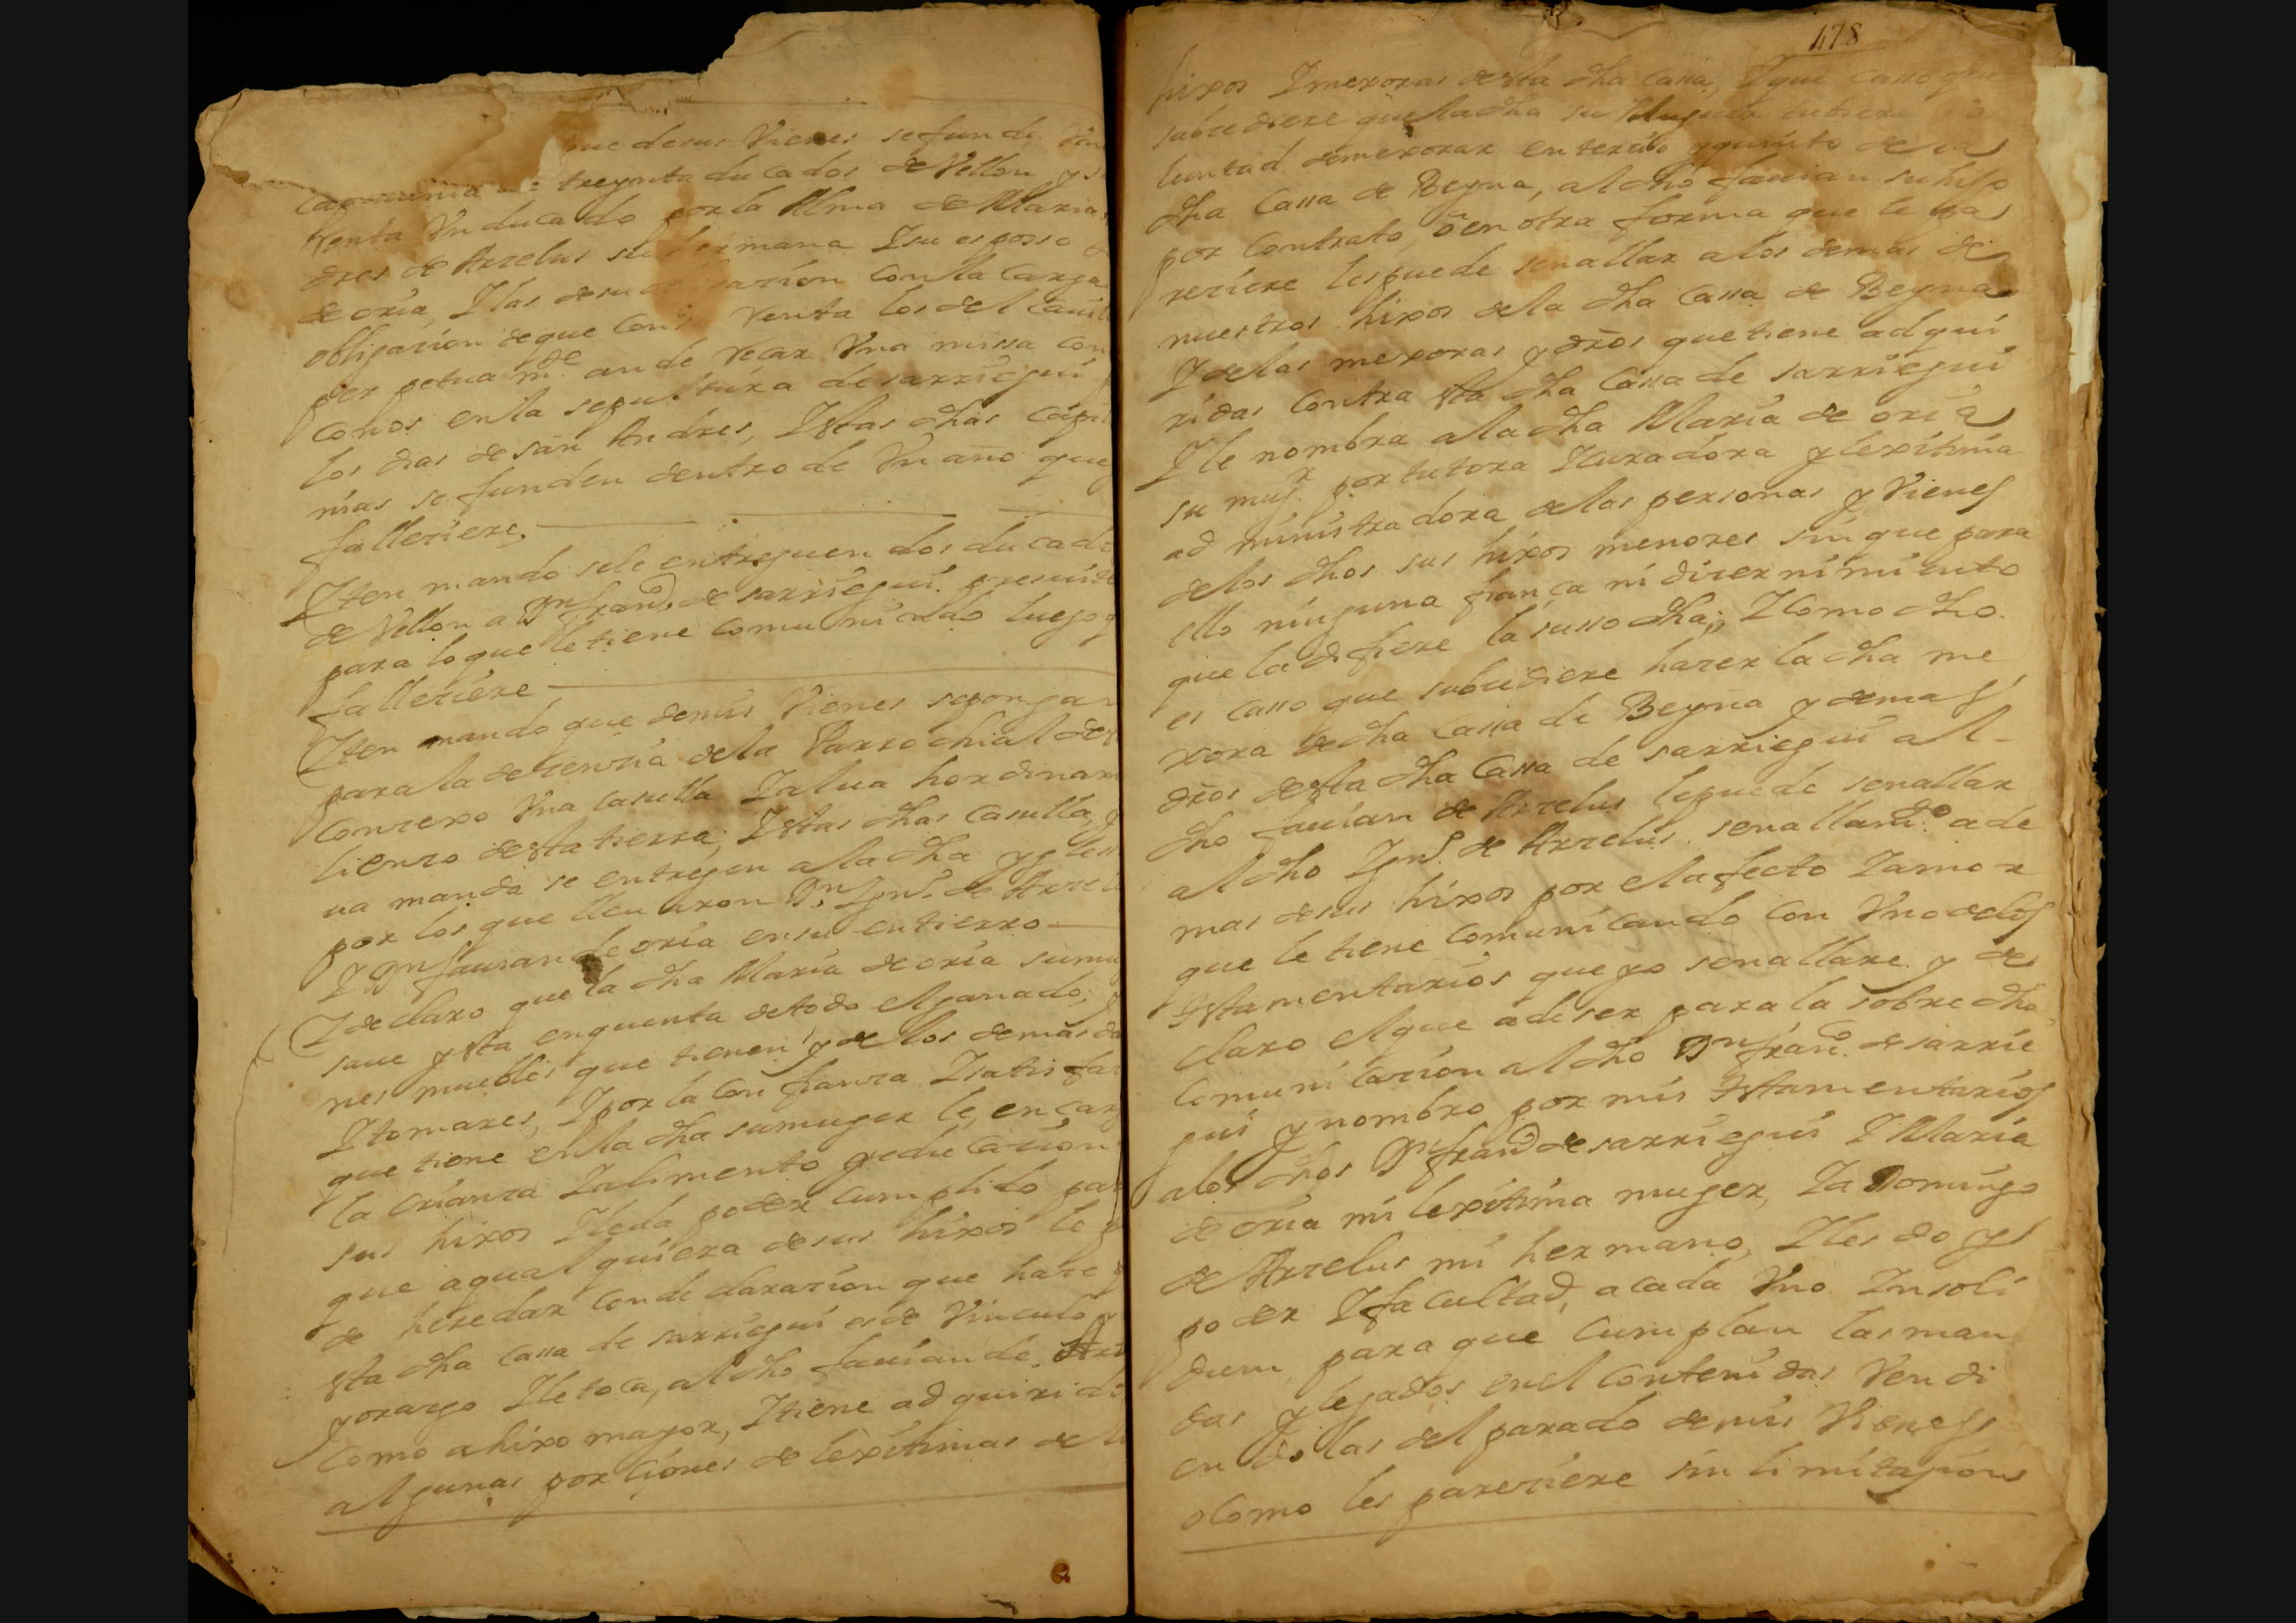 que de sus Vienes se funde
treynta ducados de Vellon y
Renta Vn ducado por la Alma de Maria
dres de Arzelus su hermana Y su esposo
de oria, Y las de su con la carga
obligacion de que con Renta los del
perpetuam.te an de Recar Vna missa con
en la sepultura de sarriegui
los dias de san Andres, Y estas dhas
nias se funden dentro de Vn año que
falleciere,
Yten mando se le entreguen dos ducado
de Vellon a Dn franco de sarriegui
para lo que le tiene comunicado luego q
falleciere
Yten mando que de mis Vienes se pongan
para la decencia de la Parrochial de
Concexo Vna casulla Y alua hordinar
lienzo desta tierra, Y estas dhas casulla y
ua manda se entregen a la dha ygles
por los que lleuaron Dn Ygno. de Arzel
Y Dn fauian de oria en su entierro
Y declaro que la dha Maria de oria su mu
saue y sta en quenta de todo el ganado, y
nes muebles que tienen y de los demas da
Y tomares, Y por la confianza Y satisfac
que tiene en la dha su muger le, encarg
la crianza Y alimento y educacion
sus hixos Y le da poder cumplido pa
que a qualquiera de sus hixos le
de heredar con declaracion que hace
sta dha cassa de sarriegui es de Vinculo y
yorazgo Y le toca, al dho fauian de Arz
como a hixo mayor, Y tiene adquirido
algunas porciones de lexitimas de
478
hixos Y mexoras desta dha Cassa, Y que casso que
subcediere que la dha su Muguer tubiere
luntad de mexorar en tercio y quinto de la
dha Cassa de Beyna, al dho fauian su hijo
por contrato, o en otra forma que le pa
reciere les puede senallar a los demas de
nuestros hixos de la dha Cassa de Beyna
Y de las mexoras y dros que tiene adqui
ridas contra sta dha Cassa de sarriegui
Y le nombra a la dha Maria de oria
su mugr. por tutora Y curadora y lexitima
administradora de las personas y Vienes
de los dhos sus hixos menores sin que para
ello ninguna fiança ni dicernimiento
que la difiere la susso dha; Y como dho
es casso que subcediere hacer la dha me
xora de dha Cassa de Beyna y demas
dros desta dha Cassa de sarriegui al
dho fauian de Arzelus le puede senallar
al dho Ygno. de Arzelus senallando a de
mas de sus hixos por el afecto Y amor
que le tiene comunicando con Vno de los
Estamentarios que yo senallare y de
claro el que a de ser para la sobre dha
comunicacion al dho Dn franco. de sarrie
gui y nombro por mis Estamentarios
a los dhos Dn franco de sarriegui Y Maria
de oria mi lexitima muger, Y a Domingo
de Arzelus mi hermano, Y les doy
poder Y facultad, a cada Vno Ynsoli
dum, para que cumplan las man
das y legados en el contenidas Vendi
endolas del parado de mis Vienes
o como les pareciere sin limitacion